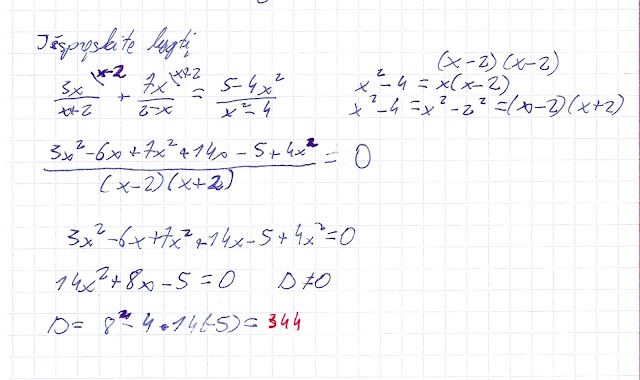 Išspręskite lygtį
3x/(x+2) \x-2 + 7x/(2-x) \x+2 = (5-4x²)/(x²-4)
(x-2)(x-2)
x²-4 = x(x-2)
x²-4 = x²-2² = (x-2)(x+2)
(3x²-6x+7x²+14x-5+4x²)/((x-2)(x+2)) = 0
3x²-6x+7x²+14x-5+4x²=0
14x²+8x-5=0 D≠0
D= 8²-4·14(-5)= 344